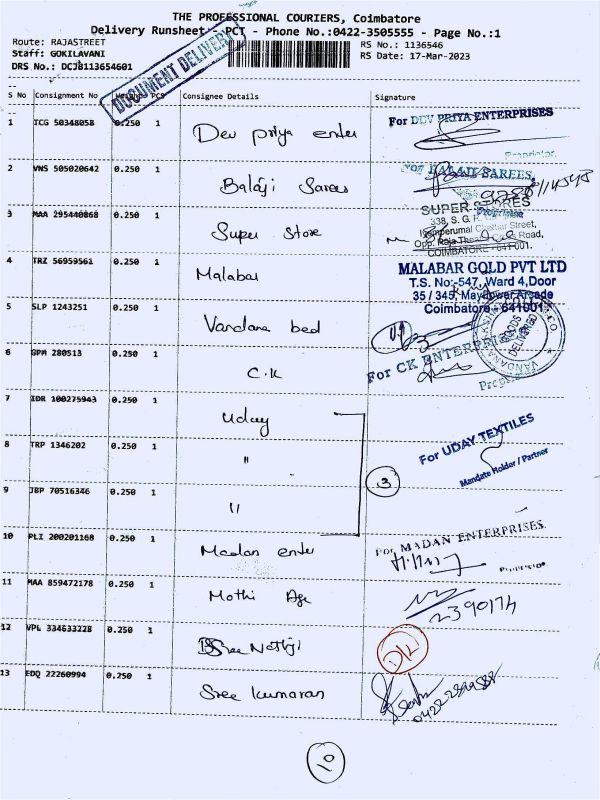 THE PROFESSIONAL COURIERS, Coimbatore
Delivery Runsheet - PCT - Phone No.:0422-3505555 - Page No.:1
Route: RAJASTREET
Staff: GOKILAVANI
DRS No.: DCJB113654601
RS No.: 1136546
RS Date: 17-Mar-2023
DOCUMENT DELIVERY
S No Consignment No Weight PCS Consignee Details Signature
1 TCG 50348058 0.250 1 Dev priya enter
For DEV PRIYA ENTERPRISES
Proprietor
2 VNS 505020642 0.250 1 Balaji Sarees
For BALAJI SAREES,
Proprietor
3 MAA 295440868 0.250 1 Super Store
SUPER STORES
338, S. G. R.
Perumal Chettiar Street,
Opp. Raja Theatre, Road,
COIMBATORE - 641001.
4 TRZ 56959561 0.250 1 Malabar
MALABAR GOLD PVT LTD
T.S. No:-547, Ward 4,Door
35 / 345, Mayflower Arcade
Coimbatore - 641001
5 SLP 1243251 0.250 1 Vandana bed
GOODS DELIVERED
VANDANA
6 GPM 280513 0.250 1 C.K
For CK ENTERPRISES
7 IDR 100275943 0.250 1 Uday
8 TRP 1346202 0.250 1 "
For UDAY TEXTILES
Mandate Holder / Partner
3
9 JBP 70516346 0.250 1 "
10 PLI 200201168 0.250 1 Madan enter
For MADAN ENTERPRISES.
Proprietor
11 MAA 859472178 0.250 1 Mothi Age
2390174
12 VPL 334633228 0.250 1 Sree Nathji
D/L
13 EDQ 22260994 0.250 1 Sree kumaran
10